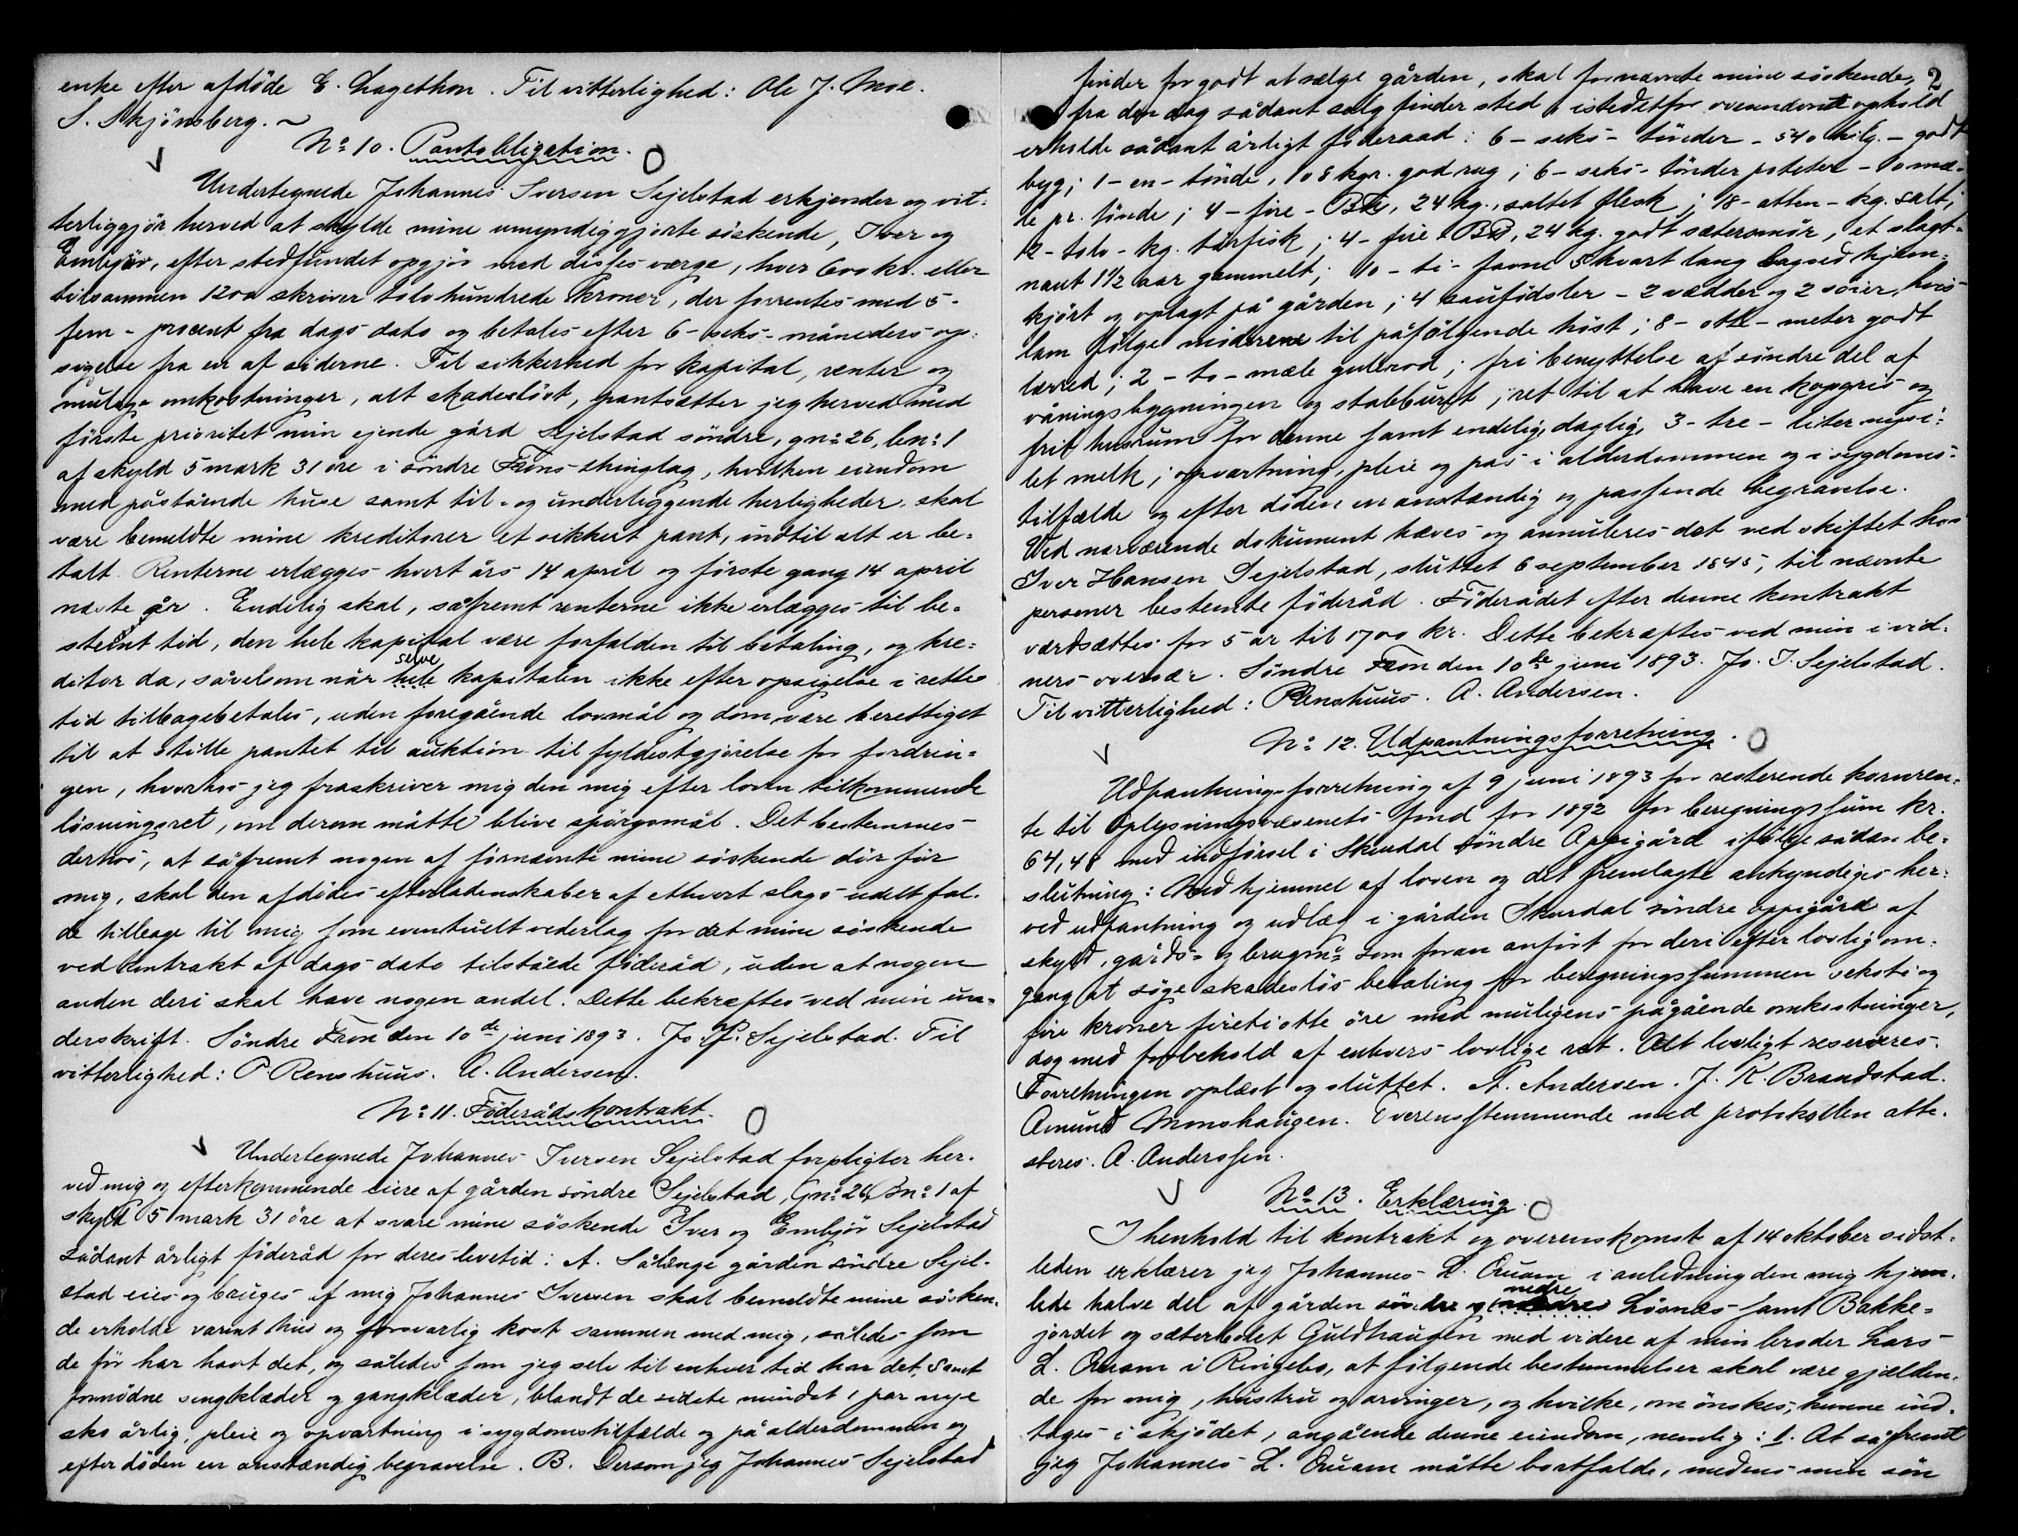 enke efter afdöde E. Lagethon. Til vitterlighed: Ole J. Moe.
S. Skjönsberg. ~
No 10. Pantobligation.
Undertegnede Johannes Iversen Sejelstad erkjender og vit-
terliggjör herved at skylde mine umyndiggjorte söskende, Iver og
Embjör, efter stedfundet opgjör med disses værge, hver 600 kr. eller
tilsammen 1200 skriver tolvhundrede kroner, der forrentes med 5-
fem - procent fra dags dato og betales efter 6 - seks - måneders op-
sigelse fra en af siderne. Til sikkerhed for kapital, renter og
mulige omkostninger, alt skadeslöst, pantsætter jeg herved med
förste prioritet min eiende gård Sejelstad söndre, gno 26, bno 1
af skyld 5 mark 31 öre i söndre Frons thinglag, hvilken eiendom
med påstående huse samt til- og underliggende herligheder skal
være bemeldte mine kreditorer et sikkert pant, indtil alt er be-
talt. Renterne erlægges hvert års 14 april og förste gang 14 april
næste år. Endelig skal, såfremt renterne ikke erlægges til be-
stemt tid, den hele kapital være forfalden til betaling, og kre-
ditor da, såvelsom når hele selve kapitalen ikke efter opsigelse i rette
tid tilbagebetales, uden foregående lovmål og dom være berettiget
til at stille pantet til auktion til fyldestgjörelse for fordrin-
gen, hvorhos jeg fraskriver mig den mig efter loven tilkommende
lösningsret, om derom måtte blive spörgsmål. Det bestemmes
derhos, at såfremt nogen af förnævnte mine söskende dör för
mig, skal den afdödes efterladenskaber af ethvert slags udelt fal-
de tilbage til mig som eventuelt vederlag for det mine söskende
ved kontrakt af dags dato tilståede föderåd, uden at nogen
anden deri skal have nogen andel. Dette bekræftes ved min un-
derskrift. Söndre Fron den 10de juni 1893. Jo. I. Sejelstad. Til
vitterlighed: P. Renshuus. A. Andersen.
No 11. Föderådskontrakt.
Undertegnede Johannes Iversen Sejelstad forpligter her-
ved mig og efterkommende eiere af gården söndre Sejelstad, Gno 26, Bno 1 af
skyld 5 mark 31 öre at svare mine söskende Iver og Embjör Sejelstad
sådant årligt föderåd for deres levetid: A. Sålænge gården söndre Sejel-
stad eies og bruges af mig Johannes Iversen skal bemeldte mine sösken-
de erholde varmt hus og forsvarlig kost sammen med mig, således som
de för har havt det, og således som jeg selv til enhver tid har det, samt
fornödne sengklæder og gangklæder, blandt de sidste mindst 1 par nye
sko årlig, pleie og opvartning i sygdomstilfælde og på alderdommen og
efter döden en anstændig begravelse. B. Dersom jeg Johannes Sejelstad
2
finder for godt at sælge gården, skal fornævnte mine söskende,
fra den dag sådant salg finder sted, istedetfor ovennævnte ophold
erholde sådant årligt föderaad: 6 - seks - tönder - 540 kilg. - godt
byg; 1 - en - tönde, 108 kgr. god rug; 6 - seks - tönder poteter - to mæ-
le pr. tönde; 4 - fire - B℔, 24 kg., saltet flesk; 18 - atten - kg. salt;
12 - tolv - kg. törfisk; 4 - fire B℔, 24 kg. godt sætersmör, et slagt-
naut 1½ aar gammelt; 10 - ti - favne 5 kvart lang bagved hjem-
kjört og oplagt på gården; 4 saufödsler - 2 vædder og 2 söier, hvis
lam fölge möderene til påfölgende höst; 8 - otte - meter godt
lærred; 2 - to - mæle gulerod; fri benyttelse af söndre del af
våningsbygningen og stabburet, ret til at have en kopgris og
frit husrum for denne samt endelig, daglig, 3 - tre - liter nysi-
let melk; opvartning, pleie og pas i alderdommen og i sygdoms-
tilfælde og efter döden en anstændig og passende begravelse.
Ved nærværende dokument hæves og annuleres det ved skiftet hos
Iver Hansen Sejelstad, sluttet 6 september 1845, til nævnte
personer bestemte föderåd. Föderådet efter denne kontrakt
værdsættes for 5 år til 1700 kr. Dette bekræftes ved min i vid-
ners overvær. Söndre Fron den 10de juni 1893. Jo. I. Sejelstad.
Til vitterlighed: P. Renshuus. A. Andersen.
No 12. Udpantningsforretning.
Udpantningsforretning af 9 juni 1893 for resterende kornren-
te til Oplysningsvæsenets fond for 1892 for beregningssum kr.
64,48 med indförsel i Skurdal söndre Oppigård ifölge sådan be-
slutning: Med hjemmel af loven og det fremlagte ankyndiges her-
ved udpantning og udlæg i gården Skurdal söndre oppigård af
skyld, gårds- og brugsno som foran anfört for deri efter lovlig om-
gang at söge skadeslös betaling for beregningssummen seksti og
fire kroner firetiotte öre med muligens pågående omkostninger,
dog med forbehold af enhvers lovlige ret. Alt lovligt reserveres.
Forretningen oplæst og sluttet. A. Andersen. J. K. Brandstad.
Amund Monshaugen. Overensstemmende med protokollen atte-
steres. A. Anderssen.
No 13. Erklæring.
I henhold til kontrakt og overenskomst af 14 oktober sidst-
leden erklærer jeg Johannes L. Quam i anledning den mig hjem-
lede halve del af gården söndre og nedre Lösnes samt Bakke-
jordet og sæterbolet Guldhaugen med videre af min broder Lars
L. Quam i Ringebo, at fölgende bestemmelser skal være gjælden-
de for mig, hustru og arvinger, og hvilke, om önskes, kunne ind-
tages i skjödet, angående denne eiendom, nemlig: 1. At såfremt
jeg Johannes L. Quam måtte bortfalde, medens min sön